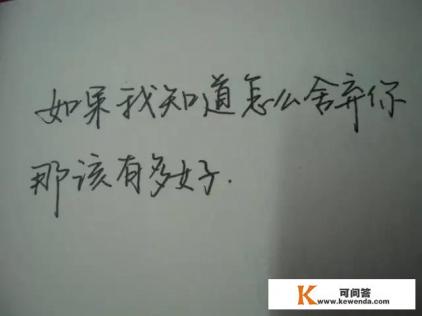 如果我知道怎么舍弃你
那该有多好.
K 可问答
www.kewenda.com